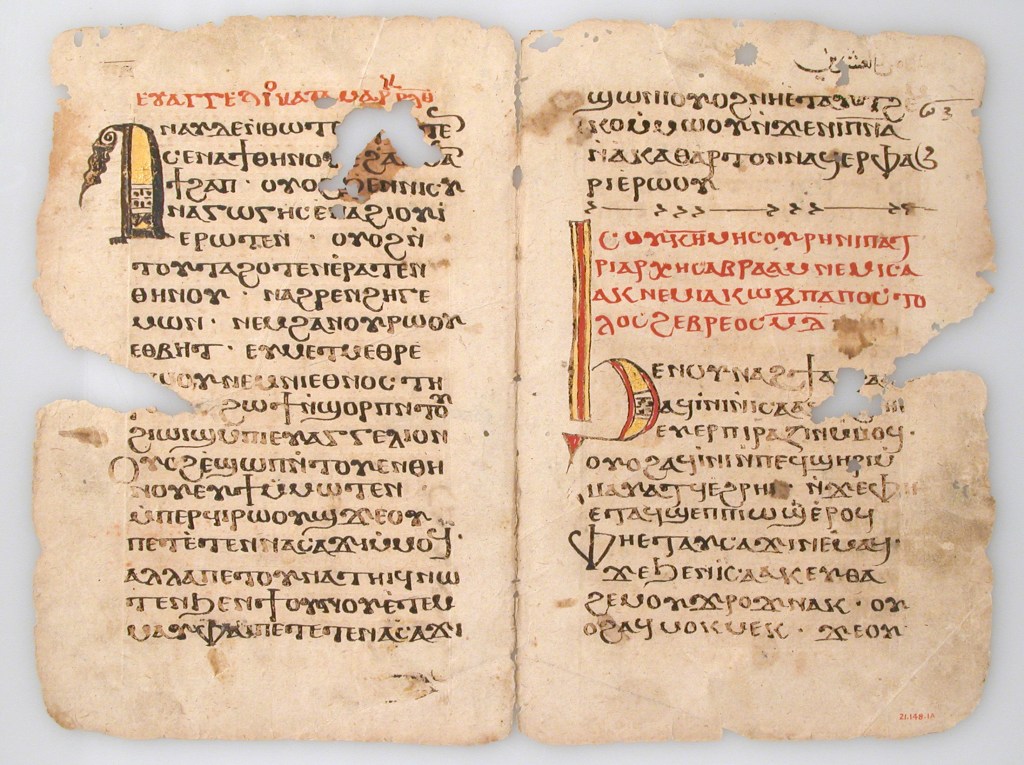 ⲉⲩⲁⲅⲅⲉⲗⲓⲟ ⲕⲁⲧⲁ
ⲁⲛⲁⲩ ⲇⲉ ⲛⲑⲱⲧⲉⲛ
ⲥⲉⲛⲁϯⲑⲏⲛⲟⲩ
ϯϩⲁⲡ · ⲟⲩⲟϩ ϧⲉⲛⲛⲓⲥⲩ
ⲛⲁⲅⲱⲅⲏ ⲥⲉⲛⲁϩⲓⲟⲩⲓ
ⲉⲣⲱⲧⲉⲛ · ⲟⲩⲟϩ ⲛ̀
ⲧⲟⲩⲧⲁϩⲟⲧⲉⲛ ⲉⲣⲁⲧⲉⲛ
ⲑⲏⲛⲟⲩ · ⲛⲁϩⲣⲉⲛϩⲏⲅⲉ
ⲙⲱⲛ · ⲛⲉⲙϩⲁⲛⲟⲩⲣⲱⲟⲩ
ⲉⲑⲃⲏⲧ · ⲉⲩⲙⲉⲧⲙⲉⲑⲣⲉ
ⲛⲱⲟⲩ ⲛⲉⲙⲛⲓⲉⲑⲛⲟⲥ ⲧⲏ
ϩⲱϯ ⲛϣⲟⲣⲡ ⲛⲧⲟⲩ
ϩⲓⲱⲓϣ ⲙⲡⲓⲉⲩⲁⲅⲅⲉⲗⲓⲟⲛ
ⲟⲩⲟϩ ⲉϣⲱⲡ ⲛ̀ⲧⲟⲩⲉⲛⲑⲏ
ⲛⲟⲩ ⲉⲩϯ ⲙ̀ⲙⲱⲧⲉⲛ
ⲙ̀ⲡⲉⲣϥⲓⲣⲱⲟⲩϣ ϫⲉⲟⲩ
ⲡⲉⲧⲉⲧⲉⲛⲛⲁⲥⲁϫⲓ ⲙ̀ⲙⲟϥ ·
ⲁⲗⲗⲁ ⲡⲉⲧⲟⲩⲛⲁⲧⲏⲓϥ ⲛⲱ
ⲧⲉⲛ ϧⲉⲛϯⲟⲩⲛⲟⲩ ⲉ̀ⲧⲉⲙ
ⲙⲁⲩ ⲫⲁⲓ ⲡⲉⲧⲉⲧⲉⲛⲁⲥⲁϫⲓ
ϣⲱⲛⲓ ⲟⲩⲟϩ ⲛⲏⲉⲧⲁⲩⲧϩⲉ
ⲙⲕⲟ ⲙ̀ⲙⲱⲟⲩ ⲛ̀ϫⲉⲛⲓⲡ̅ⲛ̅ⲁ̅
ⲛ̀ⲁⲕⲁⲑⲁⲣⲧⲟⲛ ⲛⲁϥⲉⲣⲫⲁϧ
ⲣⲓ ⲉⲣⲱⲟⲩ
ⲥⲟⲩⲕ̅ⲏ̅ ⲙⲏⲥⲟⲩⲣⲏ ⲛⲓⲡⲁⲧ
ⲣⲓⲁⲣⲭⲏⲥ ⲁⲃⲣⲁⲁⲙ ⲛⲉⲙⲓⲥⲁ
ⲁⲕ ⲛⲉⲙⲓⲁⲕⲱⲃ ⲡⲁⲡⲟⲥⲧⲟ
ⲗⲟⲥ ϩⲉⲃⲣⲉⲟⲥ ⲙ̅ⲇ̅
ϧⲉⲛⲟⲩⲛⲁϩϯ
ⲁϥⲓⲛⲓ ⲛⲓⲥⲁⲁⲕ
ⲉⲩⲉⲣⲡⲓⲣⲁⲍⲓⲛ ⲙ̀ⲙⲟϥ ·
ⲟⲩⲟϩ ⲁϥⲓⲛⲓ ⲙ̀ⲡⲉϥϣⲏⲣⲓ ⲙ̀
ⲙⲁⲩⲁⲧϥ ⲉϩⲣⲏⲓ · ⲛ̀ϫⲉⲫⲏ
ⲉⲧⲁϥϣⲉⲡⲡⲓⲱϣ ⲉ̀ⲣⲟϥ
ⲫⲏⲉⲧⲁⲩⲥⲁϫⲓ ⲛⲉⲙⲁϥ ·
ϫⲉ ϧⲉⲛⲓⲥⲁⲁⲕ ⲉⲩⲑⲁ
ϩⲉⲙ ⲟⲩϫⲣⲟϫ ⲛⲁⲕ · ⲟⲩ
ⲟϩ ⲁϥⲙⲟⲕⲙⲉⲕ · ϫⲉⲟⲩ
21.148.1a